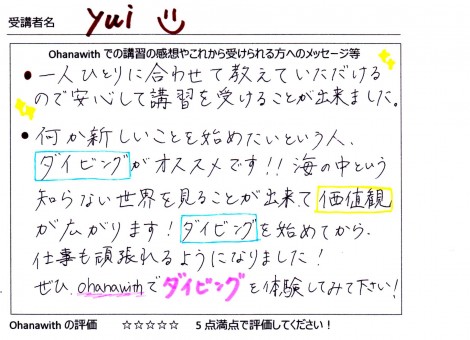 受講者名 yui
Ohanawith での講習の感想やこれから受けられる方へのメッセージ等
● 一人ひとりに合わせて教えていただける
ので安心して講習を受けることが出来ました。
● 何か新しいことを始めたいという人、
ダイビングがオススメです!! 海の中という
知らない世界を見ることが出来て価値観
が広がります! ダイビングを始めてから、
仕事も頑張れるようになりました!
ぜひ、ohanawithでダイビングを体験してみて下さい!
Ohanawith の評価 ☆☆☆☆☆ 5 点満点で評価してください!